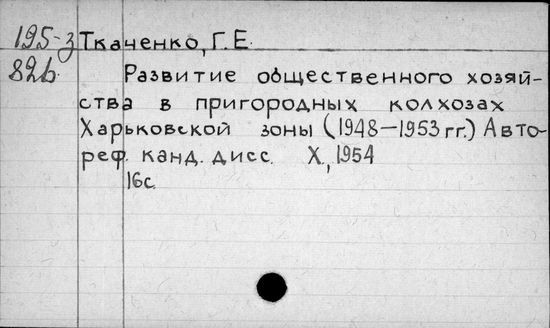 195-з Ткаченко, Г.Е.
826. Развитие общественного хозяй-
ства в пригородных колхозах
Харьковской зоны (1948—1953 гг.) Авто-
реф. канд. дисс. Х., 1954
16с.